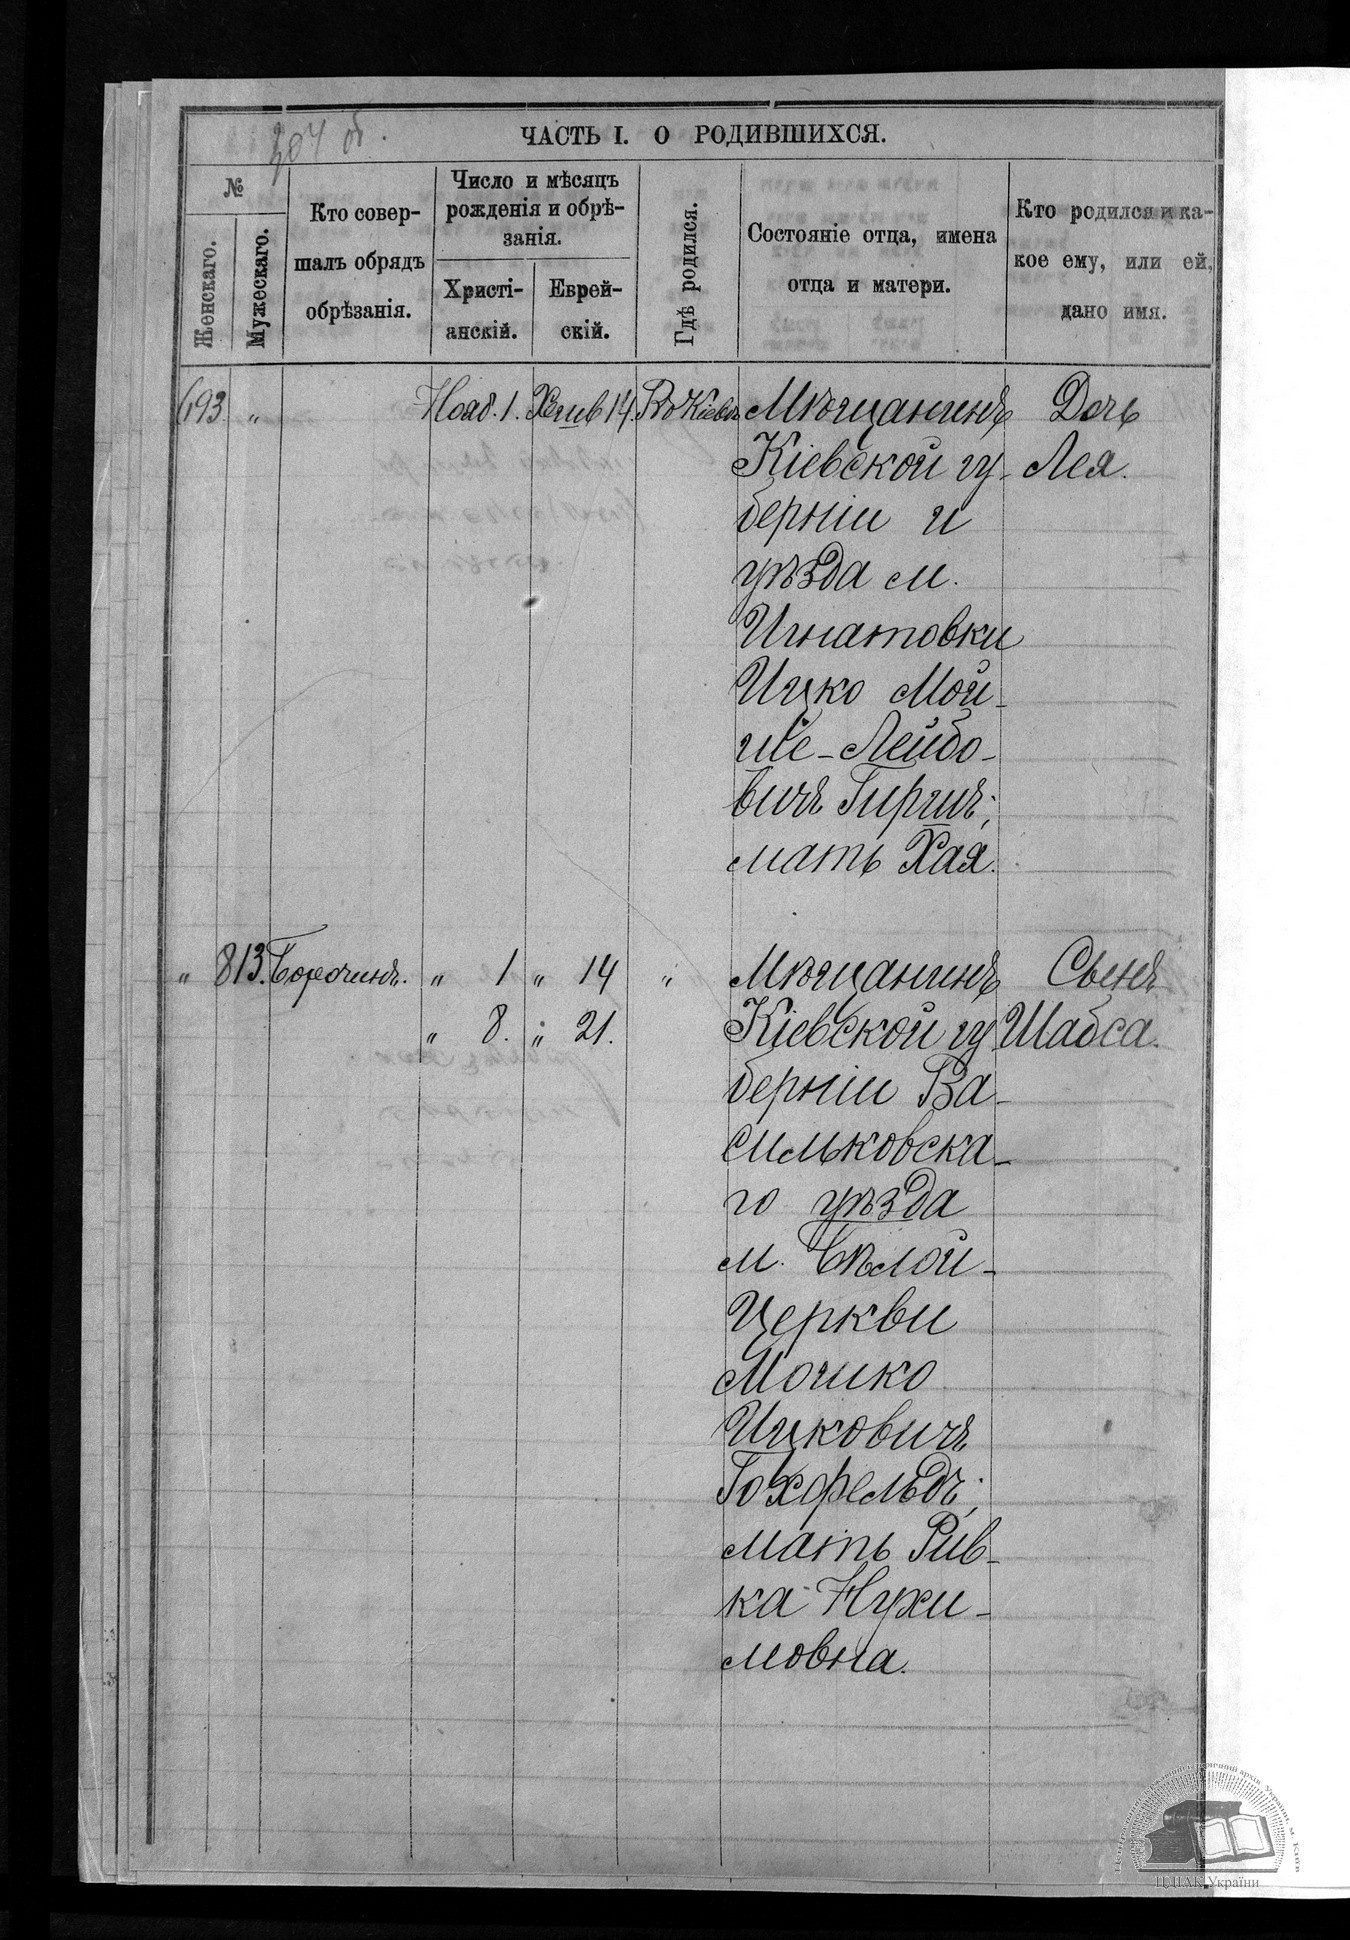 204 об.
ЧАСТЬ I. О РОДИВШИХСЯ.
№
Женскаго.
Мужескаго.
Кто совер-
шалъ обрядъ
обрѣзанія.
Число и мѣсяцъ
рожденія и обрѣ-
занія.
Христі-
анскій.
Еврей-
скій.
Гдѣ родился.
Состояніе отца, имена
отца и матери.
Кто родился и ка-
кое ему, или ей,
дано имя.
693. " Нояб. 1. 14. Въ Кіевѣ Мѣщанинъ Дочь
Кіевской гу- Лея.
берніи и
уѣзда м.
Игнатовки
Ицко Мой-
ше-Лейбо-
вичъ Гиршъ;
мать Хая.
" 813. " 1 " 14 " Мѣщанинъ Сынъ
" 8. " 21. Кіевской гу Шабса.
берніи Ва-
сильковска-
го уѣзда
м. Бѣлой-
Церкви
Мошко
Ицковичъ
Гохфельдъ;
мать Рив-
ка Нухи-
мовна.
ЦДІАК України